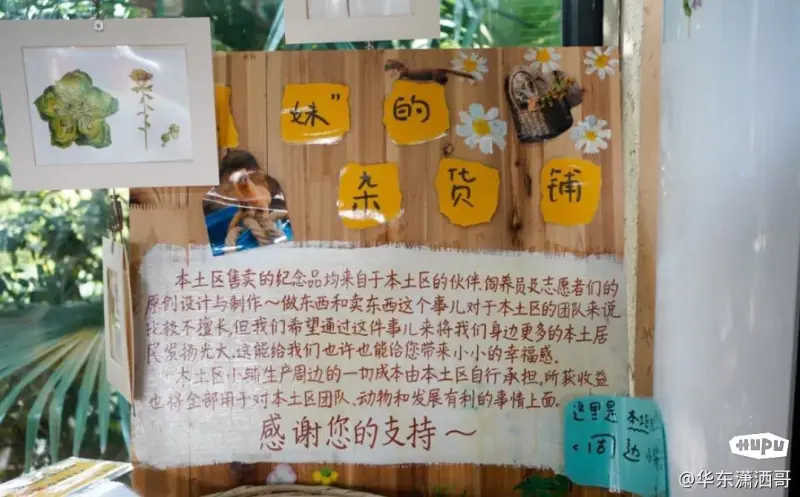 妹”的
杂货铺
本土区售卖的纪念品均来自于本土区的伙伴,饲养员及志愿者们的
原创设计与制作~做东西和卖东西这个事儿对于本土区的团队来说
比较不擅长,但我们希望通过这件事儿来将我们身边更多的本土居
民发扬光大,这能给我们也许也能给您带来小小的幸福感.
本土区小铺生产周边的一切成本由本土区自行承担,所获收益
也将全部用于对本土区团队、动物和发展有利的事情上面.
感谢您的支持~
这里是 本土
周 边
HUPU
@华东潇洒哥